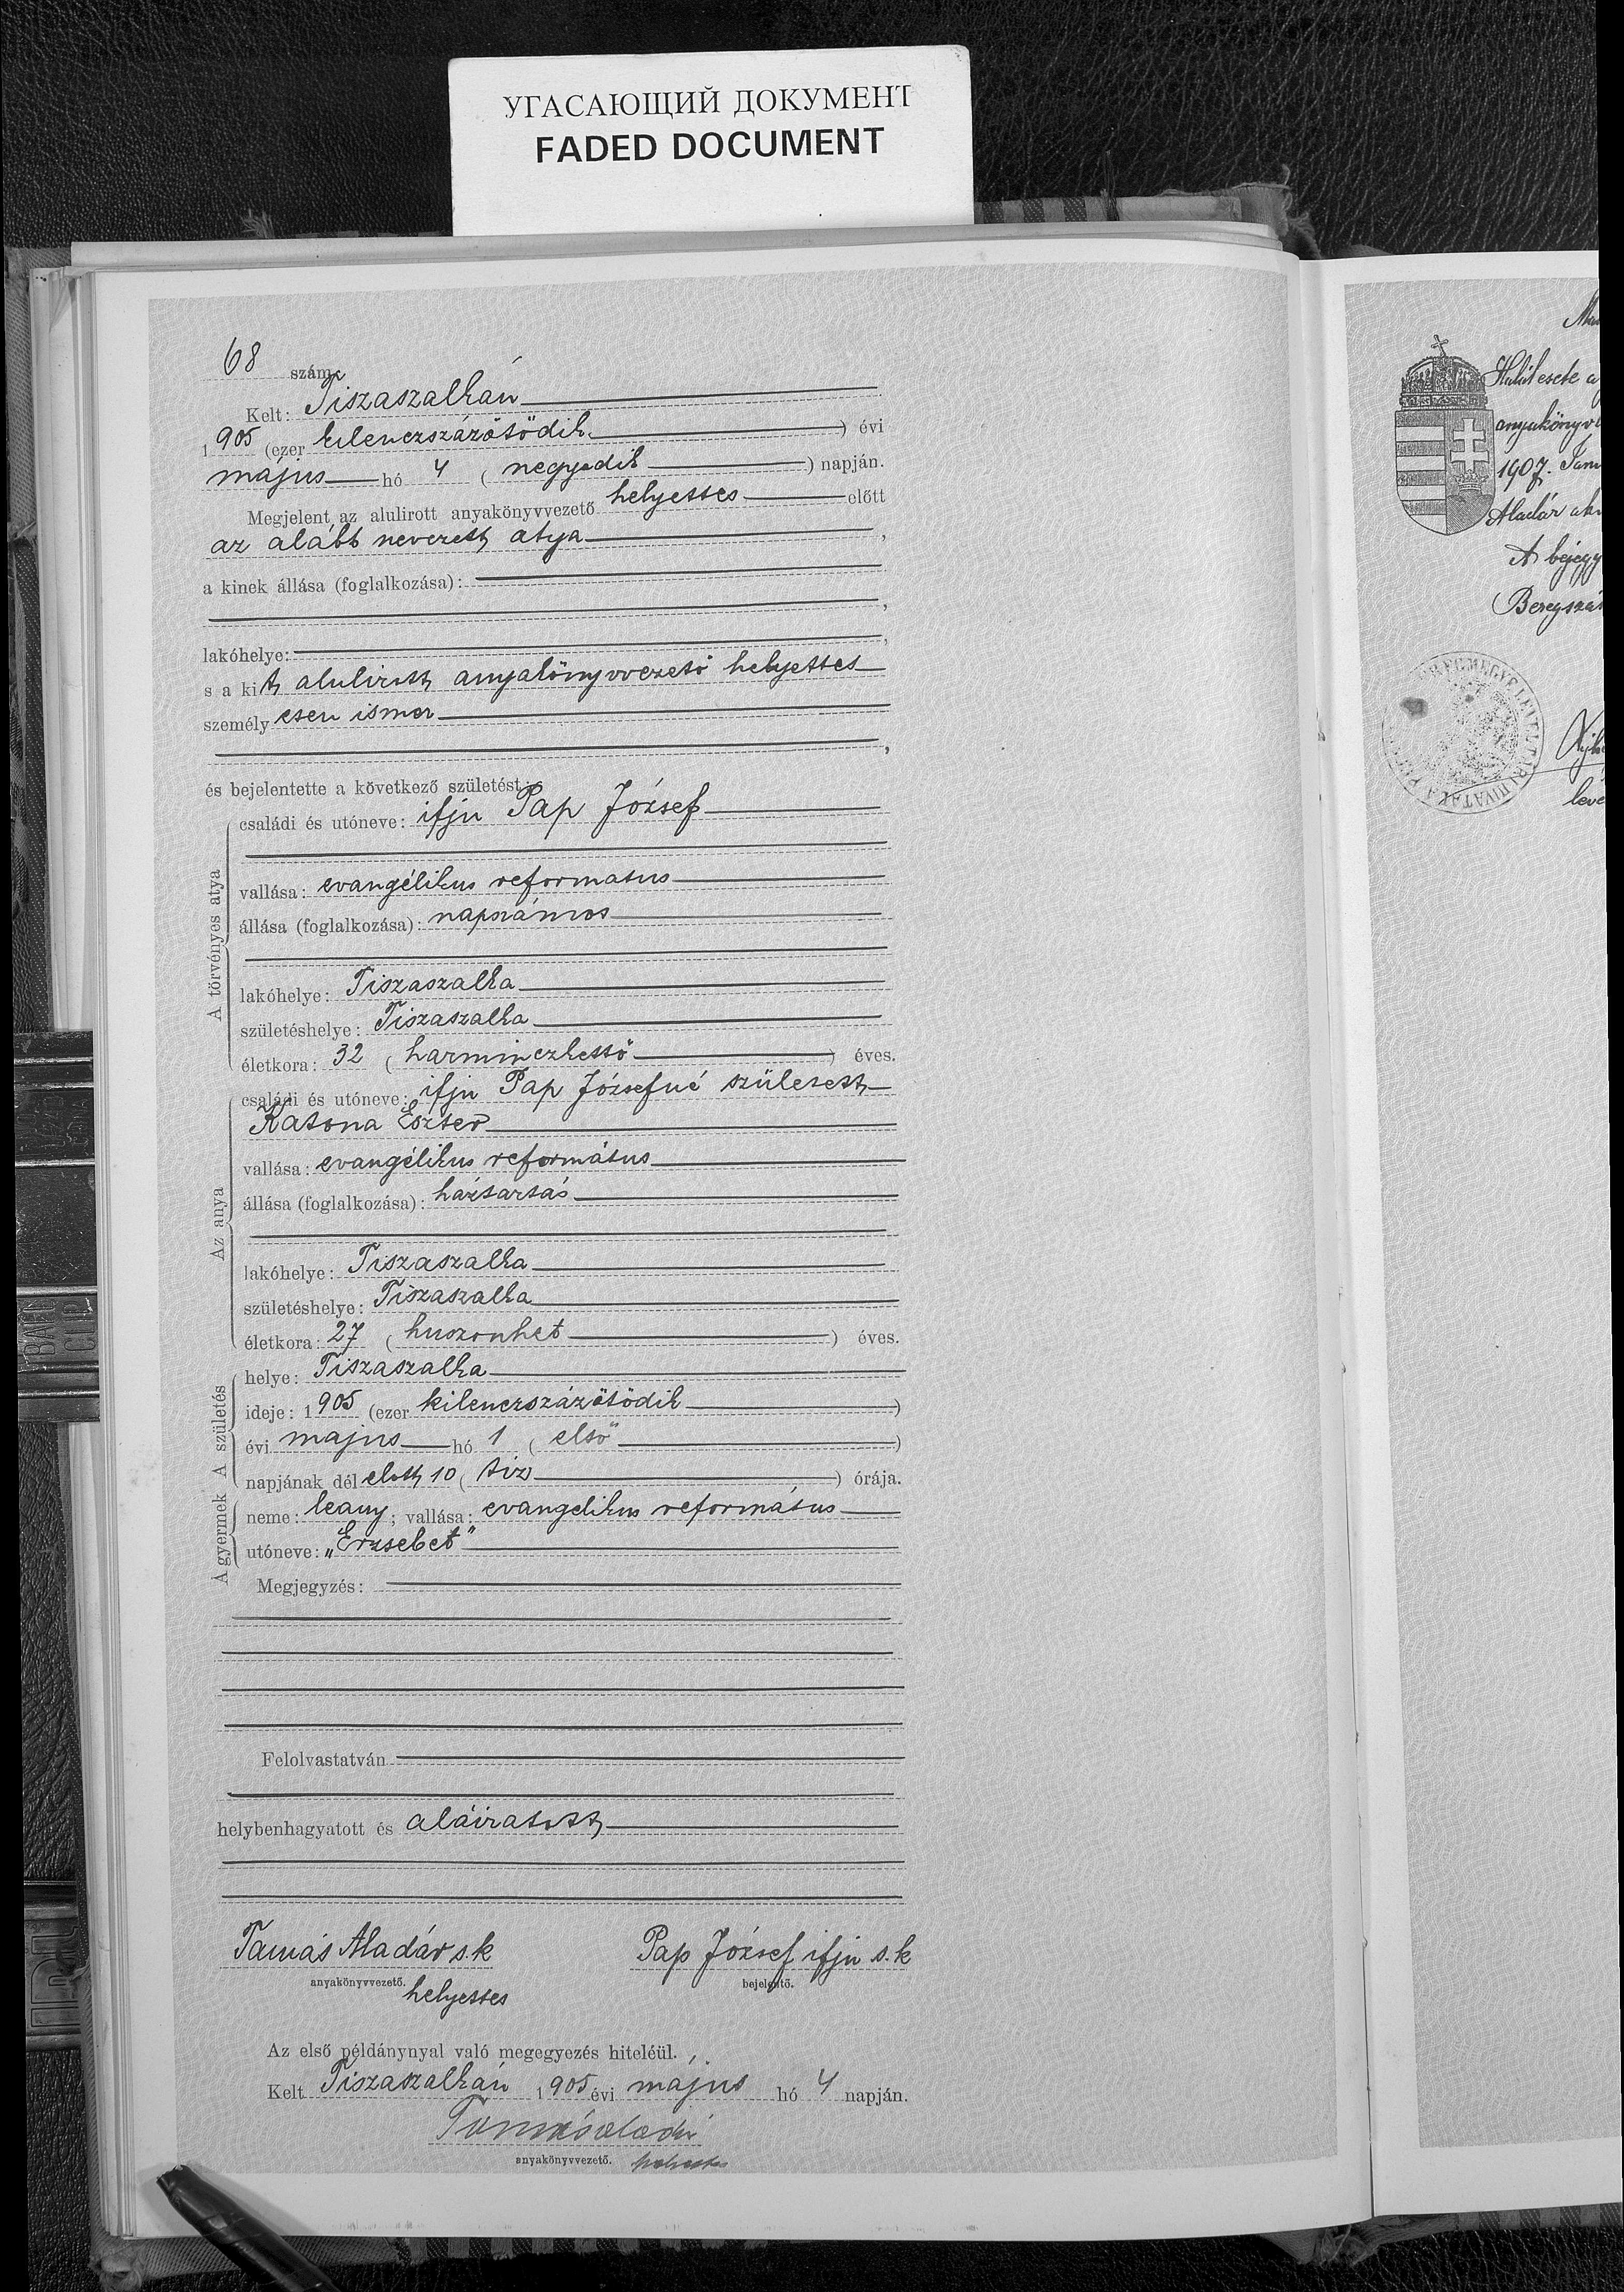 УГАСАЮЩИЙ ДОКУМЕНТ
FADED DOCUMENT
68 szám.
Kelt: Tiszaszalkán
1905 (ezer kilenczszázötödik) évi
május hó 4 (negyedik) napján.
Megjelent az alulirott anyakönyvvezető helyettes előtt
az alább nevezett atya,
a kinek állása (foglalkozása):
,
lakóhelye: ,
s a kit alulirott anyakönyvvezető helyettes
személyesen ismer
,
és bejelentette a következő születést:
A törvényes atya
családi és utóneve: ifju Pap József
vallása: evangélikus reformatus
állása (foglalkozása): napszámos
lakóhelye: Tiszaszalka
születéshelye: Tiszaszalka
életkora: 32 (harminczkettő) éves.
Az anya
családi és utóneve: ifju Pap Józsefné született
Katona Eszter
vallása: evangélikus református
állása (foglalkozása): háztartás
lakóhelye: Tiszaszalka
születéshelye: Tiszaszalka
életkora: 27 (huszonhet) éves.
A születés
helye: Tiszaszalka
ideje: 1905 (ezer kilenczszázötödik)
évi majus hó 1 (első)
napjának dél elott 10 (tiz) órája.
A gyermek
neme: leany; vallása: evangelikus református
utóneve: „Erzsebet"
Megjegyzés:
Felolvastatván
helybenhagyatott és aláiratott
Tamás Aladár s.k Pap József ifju s.k
anyakönyvvezető. helyettes bejelentő.
Az első példánynyal való megegyezés hiteléül.
Kelt Tiszaszalkán 1905 évi május hó 4 napján.
Tamás Aladár
anyakönyvvezető. helyettes
Halálesete a
anyakönyv
1907.
Aladár
A bejegy
Beregszá
BABY
CLIP